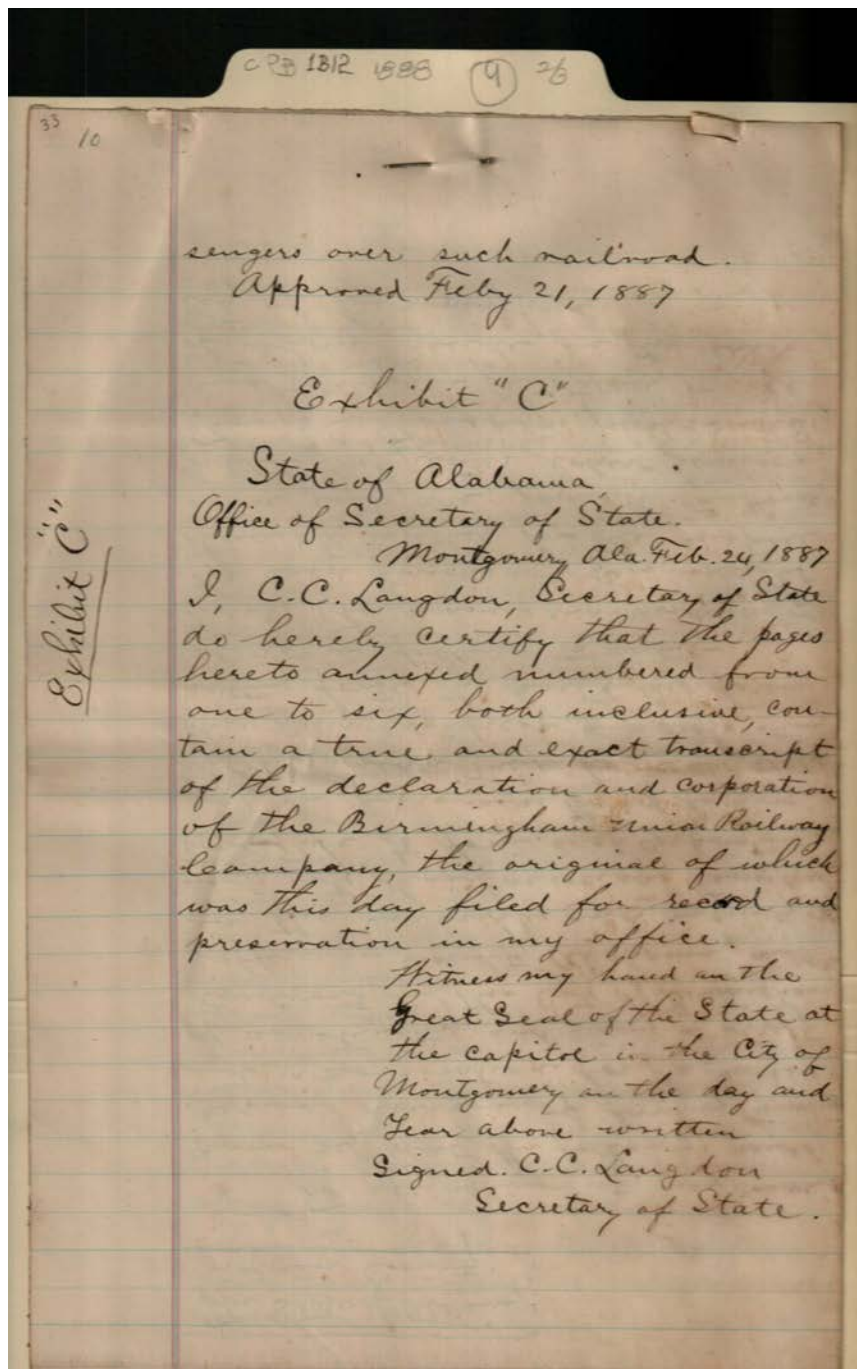 CPB 1B12 1888 9 2/6
33
10
sengers over such railroad.
Approved Feby 21, 1887
Exhibit "C"
Exhibit "C"
State of Alabama
Office of Secretary of State.
Montgomery Ala. Feb. 24, 1887
I, C.C. Langdon, Secretary of State
do hereby certify that the pages
hereto annexed numbered from
one to six, both inclusive, con-
tain a true and exact transcript
of the declaration and corporation
of the Birmingham Union Railway
Company, the original of which
was this day filed for record and
preservation in my office.
Witness my hand an the
Great Seal of the State at
the capitol in the City of
Montgomery on the day and
Year above written
Signed. C.C. Langdon
Secretary of State.